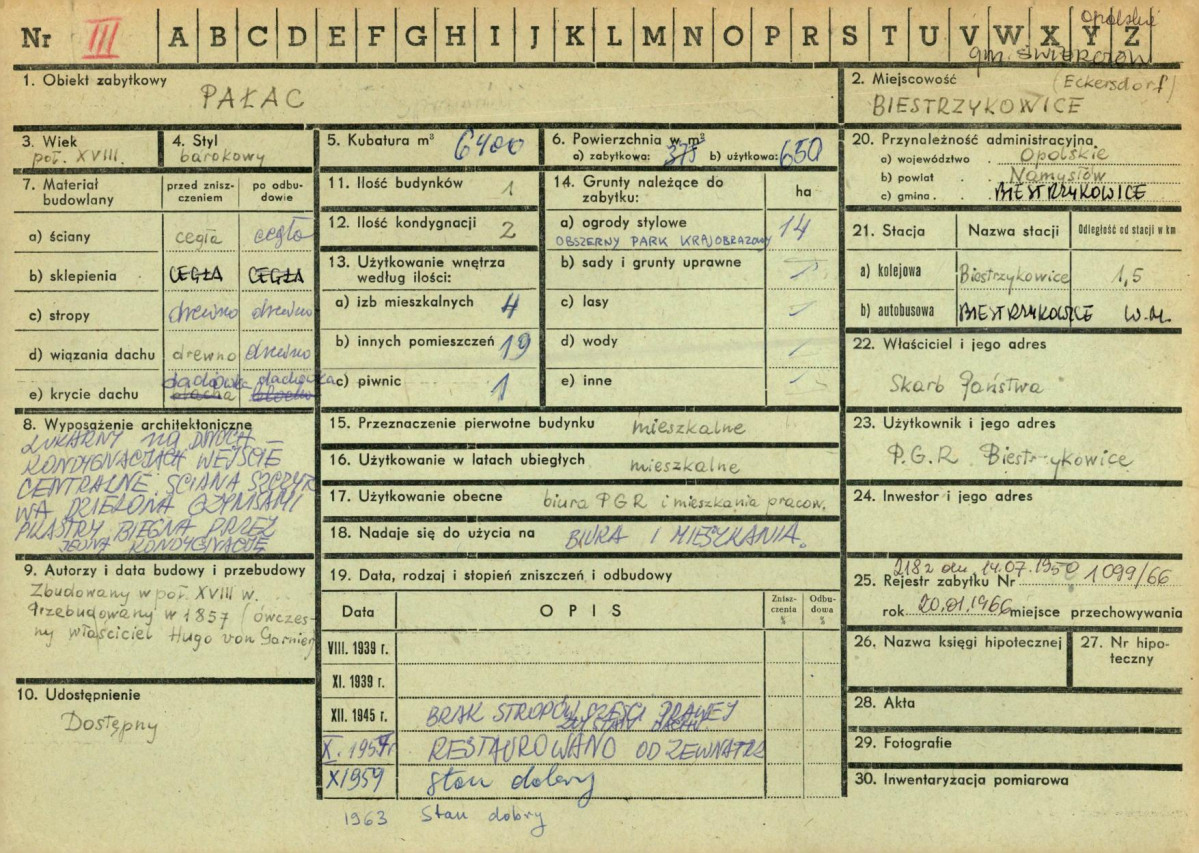 Nr III A B C D E F G H I J K L M N O P R S T U V W X Y Z
opolskie
gm. ŚWIERCZÓW
1. Obiekt zabytkowy
PAŁAC
2. Miejscowość (Eckersdorf)
BIESTRZYKOWICE
3. Wiek
poł. XVIII.
4. Styl
barokowy
5. Kubatura m³ 6400
6. Powierzchnia w m³
a) zabytkowa: 375 b) użytkowa: 650
7. Materiał budowlany
przed zniszczeniem
po odbudowie
a) ściany cegła cegła
b) sklepienia CEGŁA CEGŁA
c) stropy drewno drewno
d) wiązania dachu drewno drewno
dachówka dachówka
e) krycie dachu blacha blacha
8. Wyposażenie architektoniczne
LUKARNY NA DWÓCH –
KONDYGNACJACH WEJŚCIE
CENTRALNE ŚCIANA SZCZYTO
WA DZIELONA GZYMSAMI
PILASTRY BIEGNĄ PRZEZ
JEDNĄ KONDYGNACJĘ
9. Autorzy i data budowy i przebudowy
Zbudowany w poł. XVIII w.
Przebudowany w 1857 (ówczes-
ny właściciel Hugo von Garnier)
10. Udostępnienie
Dostępny
11. Ilość budynków 1
12. Ilość kondygnacji 2
13. Użytkowanie wnętrza
według ilości:
a) izb mieszkalnych 4
b) innych pomieszczeń 19
c) piwnic 1
14. Grunty należące do
zabytku:
ha
a) ogrody stylowe 14
OBSZERNY PARK KRAJOBRAZOWY
b) sady i grunty uprawne
c) lasy
d) wody
e) inne
15. Przeznaczenie pierwotne budynku mieszkalne
16. Użytkowanie w latach ubiegłych mieszkalne
17. Użytkowanie obecne biura PGR i mieszkania pracow.
18. Nadaje się do użycia na BIURA I MIESZKANIA.
19. Data, rodzaj i stopień zniszczeń i odbudowy
Data OPIS Zniszczenia % Odbudowa %
VIII. 1939 r.
XI. 1939 r.
XII. 1945 r. BRAK STROPÓW CZĘŚCI PRAWEJ
DACHU
X. 1957 r RESTAUROWANO OD ZEWNĄTRZ
XI 1959 Stan dobry
1963 Stan dobry
20. Przynależność administracyjna
a) województwo Opolskie
b) powiat Namysłów
c) gmina BIESTRZYKOWICE
21. Stacja Nazwa stacji Odległość od stacji w km
a) kolejowa Biestrzykowice 1,5
b) autobusowa BIESTRZYKOWICE w.m.
22. Właściciel i jego adres
Skarb Państwa
23. Użytkownik i jego adres
P.G.R Biestrzykowice
24. Inwestor i jego adres
218z dn. 14.07.1950
25. Rejestr zabytku Nr 1099/66
rok 20.01.1966 miejsce przechowywania
26. Nazwa księgi hipotecznej
27. Nr hipoteczny
28. Akta
29. Fotografie
30. Inwentaryzacja pomiarowa